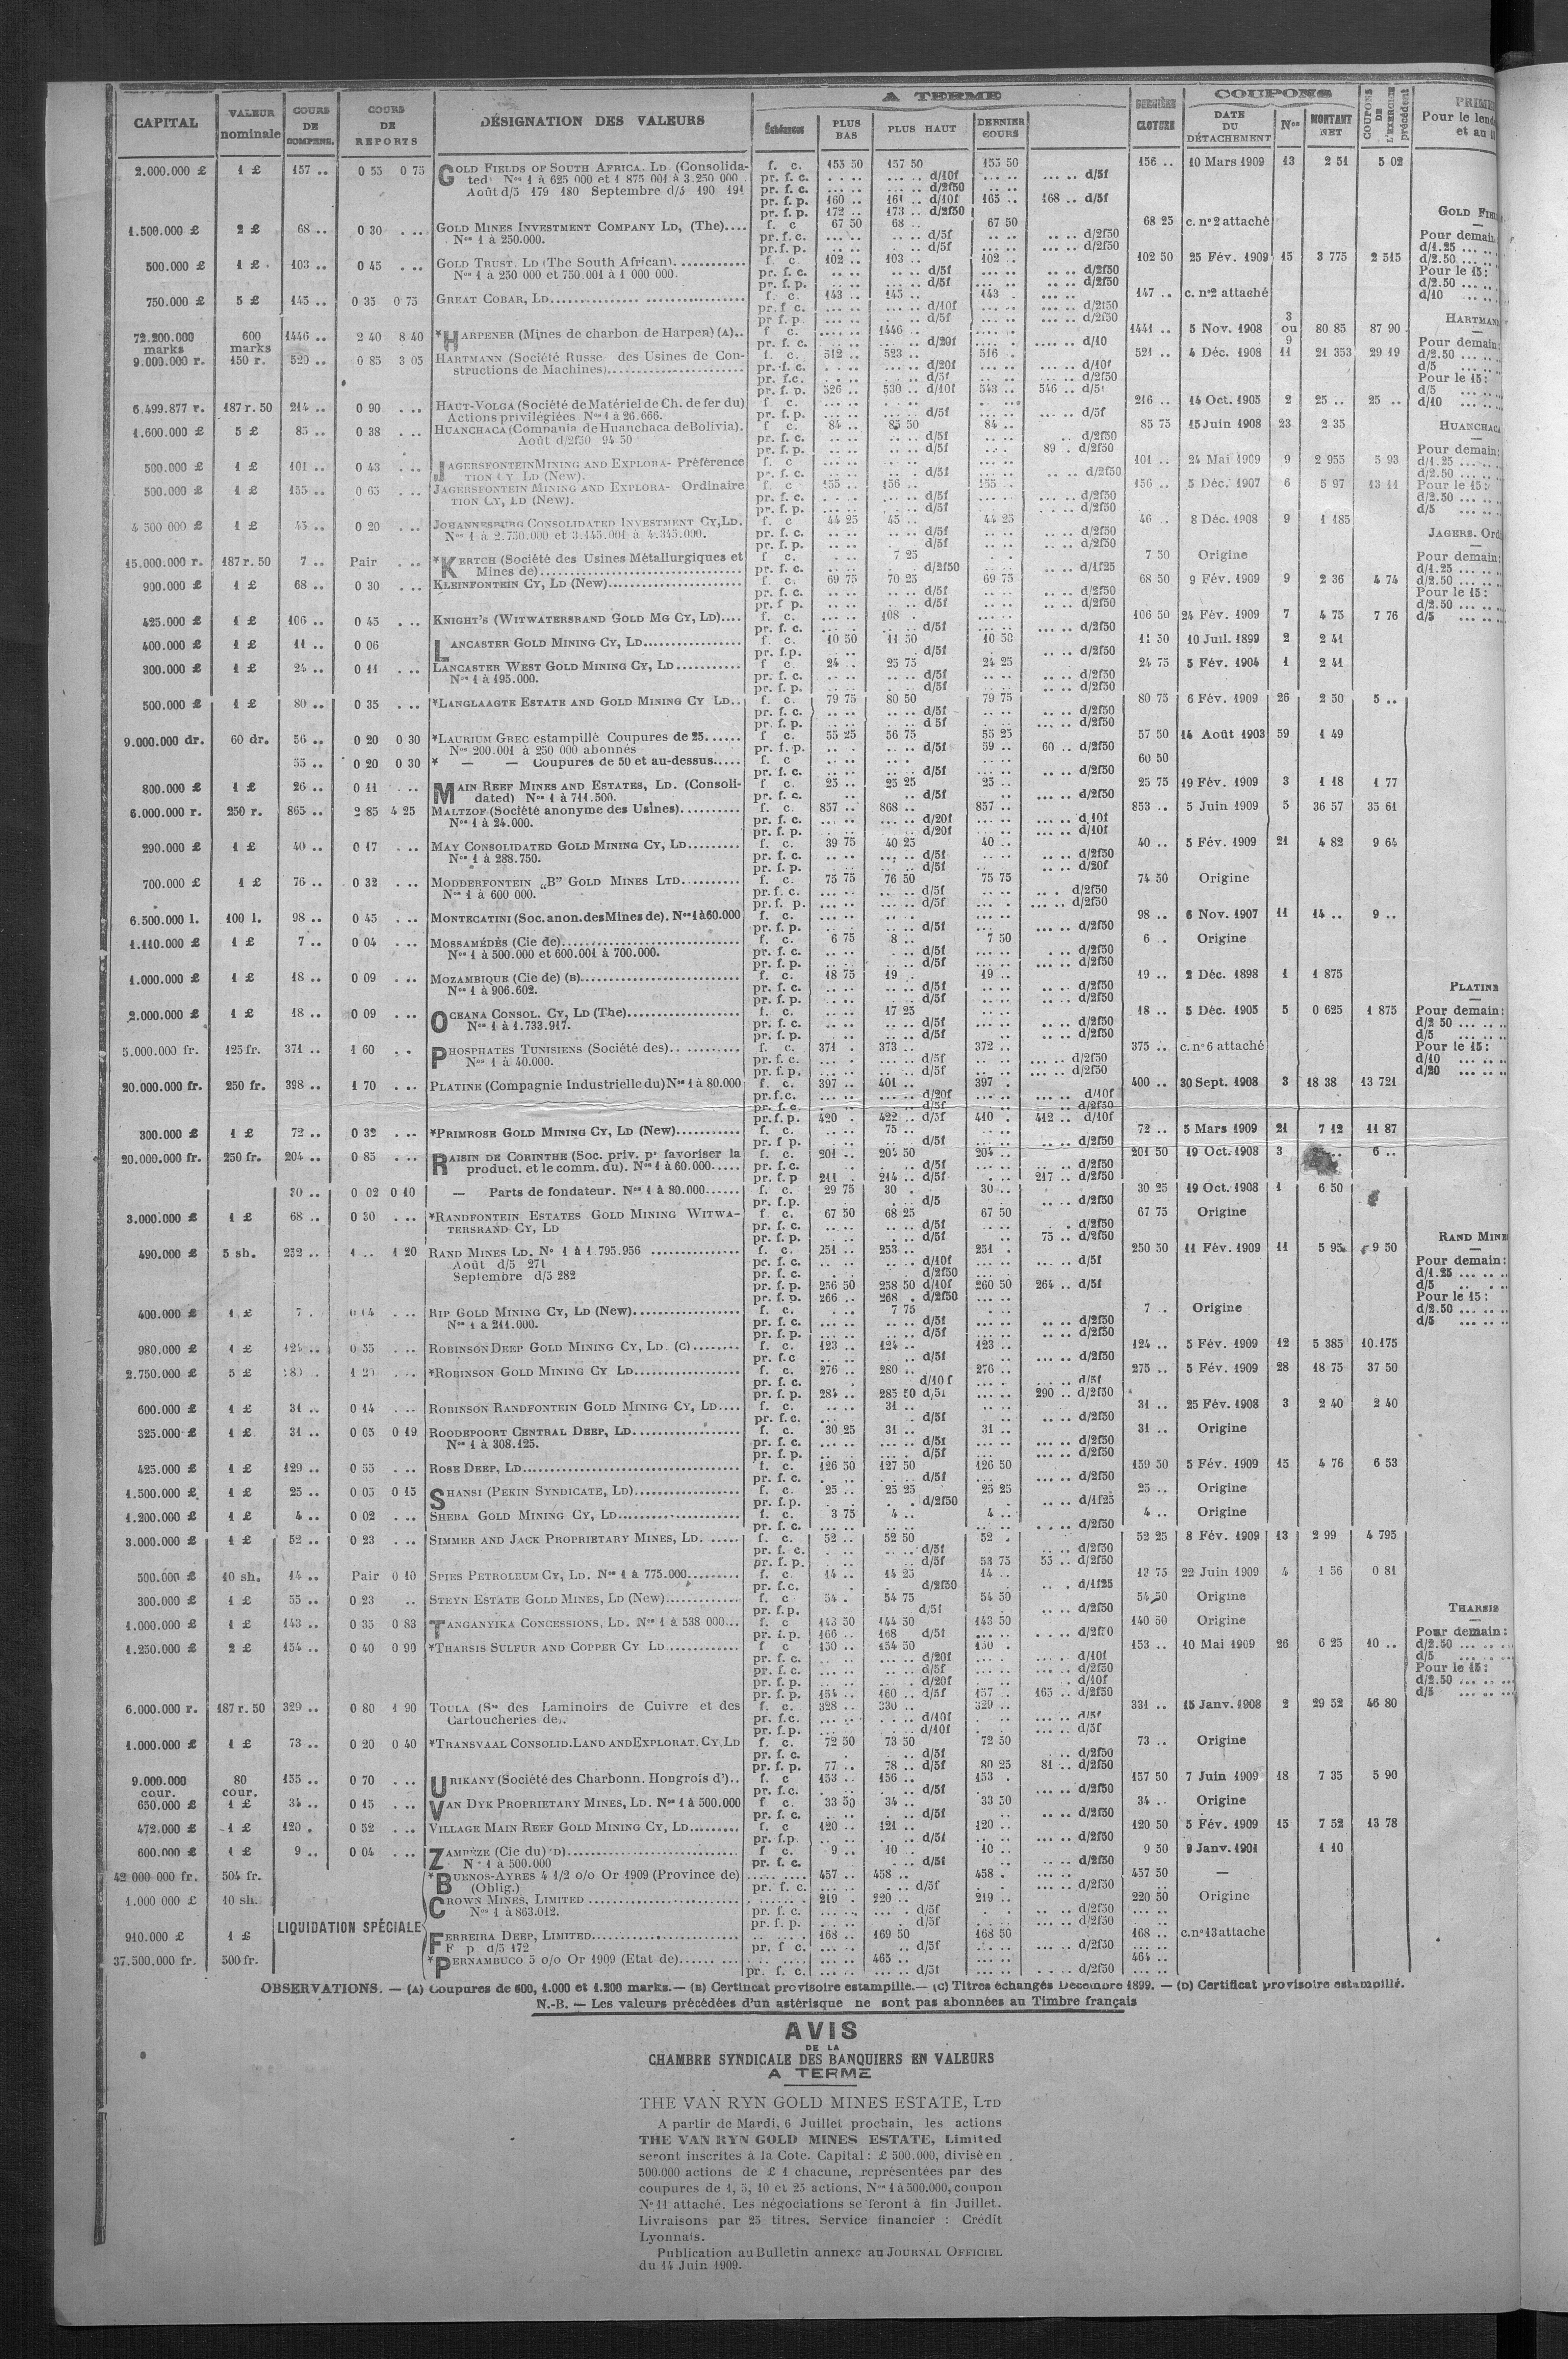 A TERME
COUPONS
CAPITAL | VALEUR nominale | COURS DE COMPENS. | COURS DE REPORTS | DÉSIGNATION DES VALEURS | Échéances | PLUS BAS | PLUS HAUT | DERNIER COURS | DERNIÈRE CLOTURE | DATE DU DÉTACHEMENT | Nos | MONTANT NET | COUPONS DE L'EXERCICE précédent
Pour le
et au
2.000.000 £ 1 £ 157 .. 0 55 0 75 GOLD FIELDS OF SOUTH AFRICA. LD (Consolida- f. c. 155 50 157 50 155 50 156 .. 10 Mars 1909 13 2 51 5 02
ted) Nos 1 à 625 000 et 1 875 001 à 3.250 000 pr. f. c. d/10f d/5f
Août d/5 179 180 Septembre d/5 190 191 pr. f. c. d/2f50
pr. f. p. 160 .. 161 .. d/10f 165 .. 168 .. d/5f
pr. f. p. 172 .. 173 .. d/2f50
1.500.000 £ 2 £ 68 .. 0 30 . .. GOLD MINES INVESTMENT COMPANY LD, (The).... f. c 67 50 68 .. 67 50 68 25 c. n° 2 attaché
Nos 1 à 250.000. pr. f. c. d/5f d/2f50
pr. f. p. d/5f d/2f50
500.000 £ 1 £ 103 .. 0 45 . .. GOLD TRUST. LD (The South African). f. c. 102 .. 103 .. 102 .. 102 50 25 Fév. 1909 15 3 775 2 515
Nos 1 à 250 000 et 750.001 à 1 000 000. pr. f. c. d/5f d/2f50
pr. f. p. d/5f d/2f50
750.000 £ 5 £ 145 .. 0 35 0 75 GREAT COBAR, LD f. c. 143 .. 145 .. 143 . 147 .. c. n°2 attaché
pr. f. c. d/10f d/2f50
pr f. p d/5f d/2f50
72.200.000 marks 600 marks 1446 .. 2 40 8 40 *HARPENER (Mines de charbon de Harpen) (A).. f. c. 1446 .. 1441 .. 5 Nov. 1908 3 ou 9 80 85 87 90
pr. f. c. d/20f d/10
9.000.000 r. 150 r. 520 .. 0 85 3 05 HARTMANN (Société Russe des Usines de Con- f. c. 512 .. 523 .. 516 .. 521 .. 4 Déc. 1908 11 21 353 29 19
structions de Machines) pr. f. c. d/20f d/10f
pr. f.c. d/5f d/2f50
pr. f. p. 526 .. 530 .. d/10f 543 .. 546 .. d/5f
6.499.877 r. 187 r. 50 214 .. 0 90 . .. HAUT-VOLGA (Société de Matériel de Ch. de fer du) f c. 216 .. 14 Oct. 1905 2 25 .. 25 ..
Actions privilégiées Nos 1 à 26.666. pr. f. p. d/5f d/5f
1.600.000 £ 5 £ 85 .. 0 38 . .. HUANCHACA (Compania de Huanchaca de Bolivia). f c. 84 .. 85 50 84 .. 85 75 15 Juin 1908 23 2 35
Août d/2f50 94 50 pr. f. c. d/5f d/2f50
pr. f. p. d/5f 89 .. d/2f50
500.000 £ 1 £ 101 .. 0 43 . .. JAGERSFONTEIN MINING AND EXPLORA- Préférence f. c 101 .. 24 Mai 1909 9 2 955 5 93
TION CY LD (New). pr. f. c. d/5f d/2f50
500.000 £ 1 £ 155 .. 0 65 . .. JAGERSFONTEIN MINING AND EXPLORA- Ordinaire f. c 155 .. 156 .. 155 .. 156 .. 5 Déc. 1907 6 5 97 13 11
TION CY, LD (New). pr. f. c. d/5f d/2f50
pr. f. p. d/5f d/2f50
4 500 000 £ 1 £ 45 .. 0 20 . .. JOHANNESBURG CONSOLIDATED INVESTMENT CY, LD. f. c 44 25 45 .. 44 25 46 .. 8 Déc. 1908 9 1 185
Nos 1 à 2.750.000 et 3.145.001 à 4.345.000. pr. f. c. d/5f d/2f50
pr. f. p. d/5f d/2f50
15.000.000 r. 187 r. 50 7 .. Pair . .. *KERTCH (Société des Usines Métallurgiques et f. c. 7 25 7 50 Origine
Mines de) pr. f. c. d/2f50 d/1f25
900.000 £ 1 £ 68 .. 0 30 . .. KLEINFONTEIN CY, LD (New) f. c. 69 75 70 25 69 75 68 50 9 Fév. 1909 9 2 36 4 74
pr. f. c. d/5f d/2f50
pr. f p. d/5f d/2f50
425.000 £ 1 £ 106 .. 0 45 . .. KNIGHT'S (WITWATERSRAND GOLD MG CY, LD).... f. c. 108 . 106 50 24 Fév. 1909 7 4 75 7 76
pr. f. c. d/5f d/2f50
400.000 £ 1 £ 11 .. 0 06 LANCASTER GOLD MINING CY, LD f. c. 10 50 11 50 10 50 11 50 10 Juil. 1899 2 2 41
pr. f.p. d/5f d/2f50
300.000 £ 1 £ 24 .. 0 11 . .. LANCASTER WEST GOLD MINING CY, LD f c. 24 .. 25 75 24 25 24 75 5 Fév. 1904 1 2 41
Nos 1 à 195.000. pr. f. c. d/5f d/2f50
pr. f. p. d/5f d/2f50
500.000 £ 1 £ 80 .. 0 35 . .. *LANGLAAGTE ESTATE AND GOLD MINING CY LD.. f. c. 79 75 80 50 79 75 80 75 6 Fév. 1909 26 2 50 5 ..
pr. f. c. d/5f d/2f50
pr. f. p. d 5f d/2f50
9.000.000 dr. 60 dr. 56 .. 0 20 0 30 *LAURIUM GREC estampillé Coupures de 25...... f c. 55 25 56 75 55 25 57 50 14 Août 1903 59 1 49
Nos 200.001 à 250 000 abonnés pr. f. p. d/5f 59 .. 60 .. d/2f50
55 .. 0 20 0 30 * — — Coupures de 50 et au-dessus..... f. c 60 50
pr. f. c. d/5f d/2f50
800.000 £ 1 £ 26 .. 0 11 . .. MAIN REEF MINES AND ESTATES, LD. (Consoli- f c. 25 .. 25 25 25 .. 25 75 19 Fév. 1909 3 1 18 1 77
dated) Nos 1 à 711.500. pr. f. c. d/5f d/2f50
6.000.000 r. 250 r. 865 .. 2 85 4 25 MALTZOF (Société anonyme des Usines) f. c. 857 .. 868 .. 857 .. 853 .. 5 Juin 1909 5 36 57 35 61
Nos 1 à 24.000. pr. f. c. d/20f d 10f
pr. f. p. d/20f d/10f
290.000 £ 1 £ 40 .. 0 17 . .. MAY CONSOLIDATED GOLD MINING CY, LD f. c. 39 75 40 25 40 .. 40 .. 5 Fév. 1909 21 4 82 9 64
Nos 1 à 288.750. pr. f. c. d/5f d/2f50
pr. f. p. d/5f d/20f
700.000 £ 1 £ 76 .. 0 32 . .. MODDERFONTEIN „B” GOLD MINES LTD f. c. 75 75 76 50 75 75 74 50 Origine
Nos 1 à 600 000. pr. f. c. d/5f d/2f50
pr. f. p. d/5f d/2f50
6.500.000 l. 100 l. 98 .. 0 45 . .. MONTECATINI (Soc. anon. des Mines de). Nos 1 à 60.000 f. c. 98 .. 6 Nov. 1907 11 14 .. 9 ..
pr. f. p. d/2f50
1.110.000 £ 1 £ 7 .. 0 04 . .. MOSSAMÉDÈS (Cie de) f. c. 6 75 8 .. 7 50 6 .. Origine
Nos 1 à 500.000 et 600.001 à 700.000. pr. f. c. d/5f d/2f50
pr. f. p. d/5f d/2f50
1.000.000 £ 1 £ 18 .. 0 09 . .. MOZAMBIQUE (Cie de) (B) f. c. 18 75 19 .. 19 .. 19 .. 2 Déc. 1898 1 1 875
Nos 1 à 906.602. pr. f. c. d/5f d/2f50
pr. f. p. d/5f d/2f50
2.000.000 £ 1 £ 18 .. 0 09 . .. OCEANA CONSOL. CY, LD (The) f. c. 17 25 18 .. 5 Déc. 1905 5 0 625 1 875
Nos 1 à 1.733.917. pr. f. c. d/5f d/2f50
pr. f. p. d/5f d/2f50
5.000.000 fr. 125 fr. 371 .. 1 60 . . PHOSPHATES TUNISIENS (Société des) f. c. 371 . 373 .. 372 .. 375 .. c. n° 6 attaché
Nos 1 à 40.000. pr. f. c. d/5f d/2f50
pr. f. p. d/5f d/2f50
20.000.000 fr. 250 fr. 398 .. 1 70 . .. PLATINE (Compagnie Industrielle du) Nos 1 à 80.000 f. c. 397 .. 401 .. 397 . 400 .. 30 Sept. 1908 3 18 38 13 721
pr. f. c. d/20f d/10f
pr. f. c. d/5f d/2f50
pr. f. p. 420 . 422 .. d/5f 410 . 412 .. d/10f
300.000 £ 1 £ 72 .. 0 32 . .. *PRIMROSE GOLD MINING CY, LD (New) f. c. 75 .. 72 .. 5 Mars 1909 21 7 12 11 87
pr. f p. d/5f d/2f50
20.000.000 fr. 250 fr. 204 .. 0 85 . .. RAISIN DE CORINTHE (Soc. priv. pr favoriser la f. c. 201 .. 204 50 204 .. 201 50 19 Oct. 1908 3 6 ..
product. et le comm. du). Nos 1 à 60.000..... pr. f. c. d/2f50
pr. f. p 211 . 214 .. d/5f 217 .. d/2f50
30 .. 0 02 0 10 — Parts de fondateur. Nos 1 à 80.000...... f. c. 29 75 30 . 30 .. 30 25 19 Oct. 1908 1 6 50
pr. f.p. d/5 d/2f50
3.000.000 £ 1 £ 68 .. 0 30 . .. *RANDFONTEIN ESTATES GOLD MINING WITWA- f. c. 67 50 68 25 67 50 67 75 Origine
TERSRAND CY, LD pr. f. c. d/5f d/2f50
pr. f. p. d/5f 75 .. d/2f50
490.000 £ 5 sh. 252 .. 1 .. 1 20 RAND MINES LD. N° 1 à 1 795.956 f. c. 251 .. 253 .. 251 . 250 50 11 Fév. 1909 11 5 95 9 50
Août d/5 271 pr. f. c. d/10f d/5f
Septembre d/5 282 pr. f. c. d/2f50
pr. f. p. 256 50 258 50 d/10f 260 50 264 .. d/5f
pr. f. p. 266 .. 268 . d/2f50
400.000 £ 1 £ 7 . 0 04 . .. RIP GOLD MINING CY, LD (New) f. c. 7 75 7 .. Origine
Nos 1 a 211.000. pr. f. c. d/5f d/2f50
pr. f. p. d/5f d/2f50
980.000 £ 1 £ 124 .. 0 55 . .. ROBINSON DEEP GOLD MINING CY, LD. (C) f. c. 123 .. 124 .. 123 .. 124 .. 5 Fév. 1909 12 5 385 10.175
pr. f.c d/5f d/2f50
2.750.000 £ 5 £ 1 20 . .. *ROBINSON GOLD MINING CY LD f. c. 276 .. 280 .. 276 .. 275 .. 5 Fév. 1909 28 18 75 37 50
pr. f. c. d/10 f d/5f
pr. f. p. 284 .. 285 50 d/5f 290 .. d/2f50
600.000 £ 1 £ 31 .. 0 14 . .. ROBINSON RANDFONTEIN GOLD MINING CY, LD.... f. c. 31 .. 31 .. 25 Fév. 1908 3 2 40 2 40
pr. f.c. d/5f d/2f50
325.000 £ 1 £ 31 .. 0 05 0 19 ROODEPOORT CENTRAL DEEP, LD f. c. 30 25 31 .. 31 .. 31 .. Origine
Nos 1 à 308.125. pr. f. c. d/5f d/2f50
pr. f. p. d/5f d/2f50
425.000 £ 1 £ 129 .. 0 55 . .. ROSE DEEP, LD f. c. 126 50 127 50 126 50 159 50 5 Fév. 1909 15 4 76 6 53
pr. f. c. d/5f d/2f50
1.500.000 £ 1 £ 25 .. 0 05 0 15 SHANSI (PEKIN SYNDICATE, LD) f. c. 25 .. 25 25 25 25 25 .. Origine
pr. f.p. d/2f50 d/1f25
1.200.000 £ 1 £ 4 .. 0 02 . .. SHEBA GOLD MINING CY, LD f. c. 3 75 4 .. 4 .. 4 .. Origine
pr. f. c. d/2f50
3.000.000 £ 1 £ 52 .. 0 23 . .. SIMMER AND JACK PROPRIETARY MINES, LD. f. c. 52 .. 52 50 52 . 52 25 8 Fév. 1909 13 2 99 4 795
pr. f. c. d/5f d/2f50
pr. f. p. d/5f 53 75 55 .. d/2f50
500.000 £ 10 sh. 14 .. Pair 0 10 SPIES PETROLEUM CY, LD. Nos 1 à 775.000 f. c. 14 .. 14 25 14 .. 13 75 22 Juin 1909 4 1 56 0 81
pr. f.c. d/2f50 d/1f25
300.000 £ 1 £ 55 .. 0 23 .. STEYN ESTATE GOLD MINES, LD (New) f. c 54 . 54 75 54 50 54 50 Origine
pr. f.p. d/5f d/2f50
1.000.000 £ 1 £ 143 .. 0 35 0 83 TANGANYIKA CONCESSIONS, LD. Nos 1 à 538 000... f. c 143 50 144 50 143 50 140 50 Origine
pr. f.p. 166 .. 168 d/5f d/2f50
1.250.000 £ 2 £ 154 .. 0 40 0 90 *THARSIS SULFUR AND COPPER CY LD f c 150 .. 154 50 150 . 153 .. 10 Mai 1909 26 6 25 10 ..
pr. f. c. d/20f d/10f
pr. f. c. d/5f d/2f50
pr. f. p. d/20f d/10f
pr. f. p. 154 .. 160 .. d/5f 157 . 165 .. d/2f50
6.000.000 r. 187 r. 50 329 .. 0 80 1 90 TOULA (Sté des Laminoirs de Cuivre et des f. c. 328 .. 330 .. 329 .. 331 .. 15 Janv. 1908 2 29 52 46 80
Cartoucheries de). pr. f.c. d/10f d/5f
pr. f.p. d/10f d/5f
1.000.000 £ 1 £ 73 .. 0 20 0 40 *TRANSVAAL CONSOLID. LAND AND EXPLORAT. CY. LD f. c. 72 50 73 50 72 50 73 .. Origine
pr. f. c. d/5f d/2f50
pr. f. p. 77 .. 78 .. d/5f 80 25 81 .. d/2f50
9.000.000 cour. 80 cour. 155 .. 0 70 . .. URIKANY (Société des Charbonn. Hongrois d').. f. c 153 .. 156 .. 153 . 157 50 7 Juin 1909 18 7 35 5 90
pr. f.c. d/5f d/2f50
650.000 £ 1 £ 34 .. 0 15 . .. VAN DYK PROPRIETARY MINES, LD. Nos 1 à 500.000 f c. 33 50 34 .. 33 50 34 .. Origine
pr. f. c. d/5f d/2f50
472.000 £ 1 £ 120 . 0 52 . .. VILLAGE MAIN REEF GOLD MINING CY, LD f. c 120 .. 121 .. 120 .. 120 50 5 Fév. 1909 15 7 52 13 78
pr. f.p. d/5f d/2f50
600.000 £ 1 £ 9 .. 0 04 . .. ZAMBÈZE (Cie du) (D) f c. 9 .. 10 .. 10 .. 9 50 9 Janv. 1901 1 10
Nos 1 à 500.000 pr. f. c. d/5f d/2f50
42 000 000 fr. 504 fr. *BUENOS-AYRES 4 1/2 o/o Or 1909 (Province de) 457 .. 458 .. 458 . 457 50 —
(Oblig.) pr. f. c. d/5f d/2f50
1.000.000 £ 10 sh. CROWN MINES, LIMITED 219 . 220 .. 219 .. 220 50 Origine
Nos 1 à 863.012. pr. f. c. d/5f d/2f50
pr. f. p. d/5f d/2f50
LIQUIDATION SPÉCIALE
910.000 £ 1 £ FERREIRA DEEP, LIMITED 168 .. 169 50 168 50 168 .. c. n° 13 attache
F p d/5 172 pr. f c. d/5f d/2f50
37.500.000 fr. 500 fr. *PERNAMBUCO 5 o/o Or 1909 (Etat de) 465 .. 464 ..
pr. f. c. d/5f d/2f50
GOLD
Pour demain
d/1.25
d/2.50
Pour le 15:
d/2.50
d/10
HARTMANN
Pour demain:
d/2.50
d/5
Pour le 15:
d/5
d/10
HUANCHACA
Pour demain:
d/1.25
d/2.50
Pour le 15:
d/2.50
d/5
JAGERS. Ord
Pour demain:
d/1.25
d/2.50
Pour le 15:
d/2.50
d/5
PLATINE
Pour demain:
d/2 50
d/5
Pour le 15:
d/10
d/20
RAND MINE
Pour demain:
d/1.25
d/5
Pour le 15:
d/2.50
d/5
THARSIS
Pour demain:
d/2.50
d/5
Pour le 15:
d/2.50
d/5
OBSERVATIONS. — (A) Coupures de 600, 1.000 et 1.200 marks. — (B) Certificat provisoire estampille. — (C) Titres échangés Décembre 1899. — (D) Certificat provisoire estampillé.
N.-B. — Les valeurs précédées d'un astérisque ne sont pas abonnées au Timbre français
AVIS
DE LA
CHAMBRE SYNDICALE DES BANQUIERS EN VALEURS
A TERME
THE VAN RYN GOLD MINES ESTATE, LTD
A partir de Mardi, 6 Juillet prochain, les actions
THE VAN RYN GOLD MINES ESTATE, Limited
seront inscrites à la Cote. Capital : £ 500.000, divisé en
500.000 actions de £ 1 chacune, représentées par des
coupures de 1, 5, 10 et 25 actions, Nos 1 à 500.000, coupon
N° 11 attaché. Les négociations se feront à fin Juillet.
Livraisons par 25 titres. Service financier : Crédit
Lyonnais.
Publication au Bulletin annexe au JOURNAL OFFICIEL
du 14 Juin 1909.